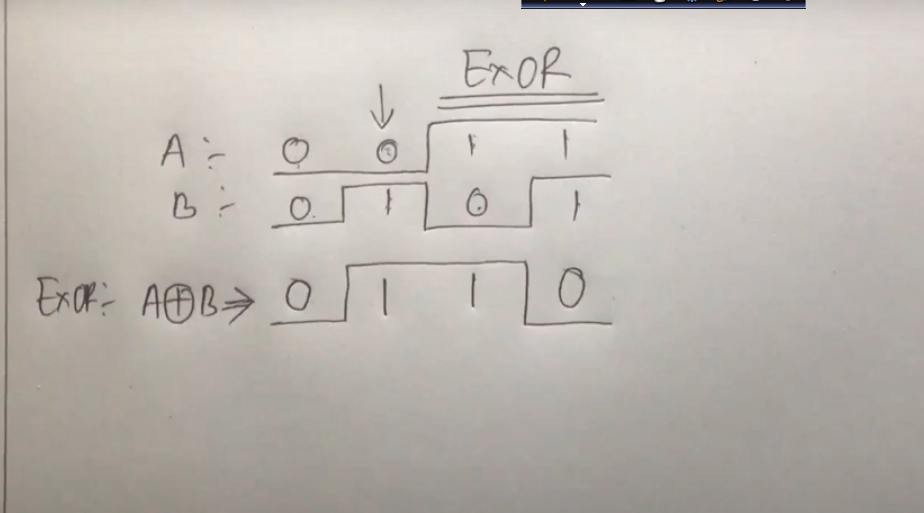 ExOR
A :- 0 0 1 1
B :- 0 1 0 1
ExOR:- A⊕B⇒ 0 1 1 0